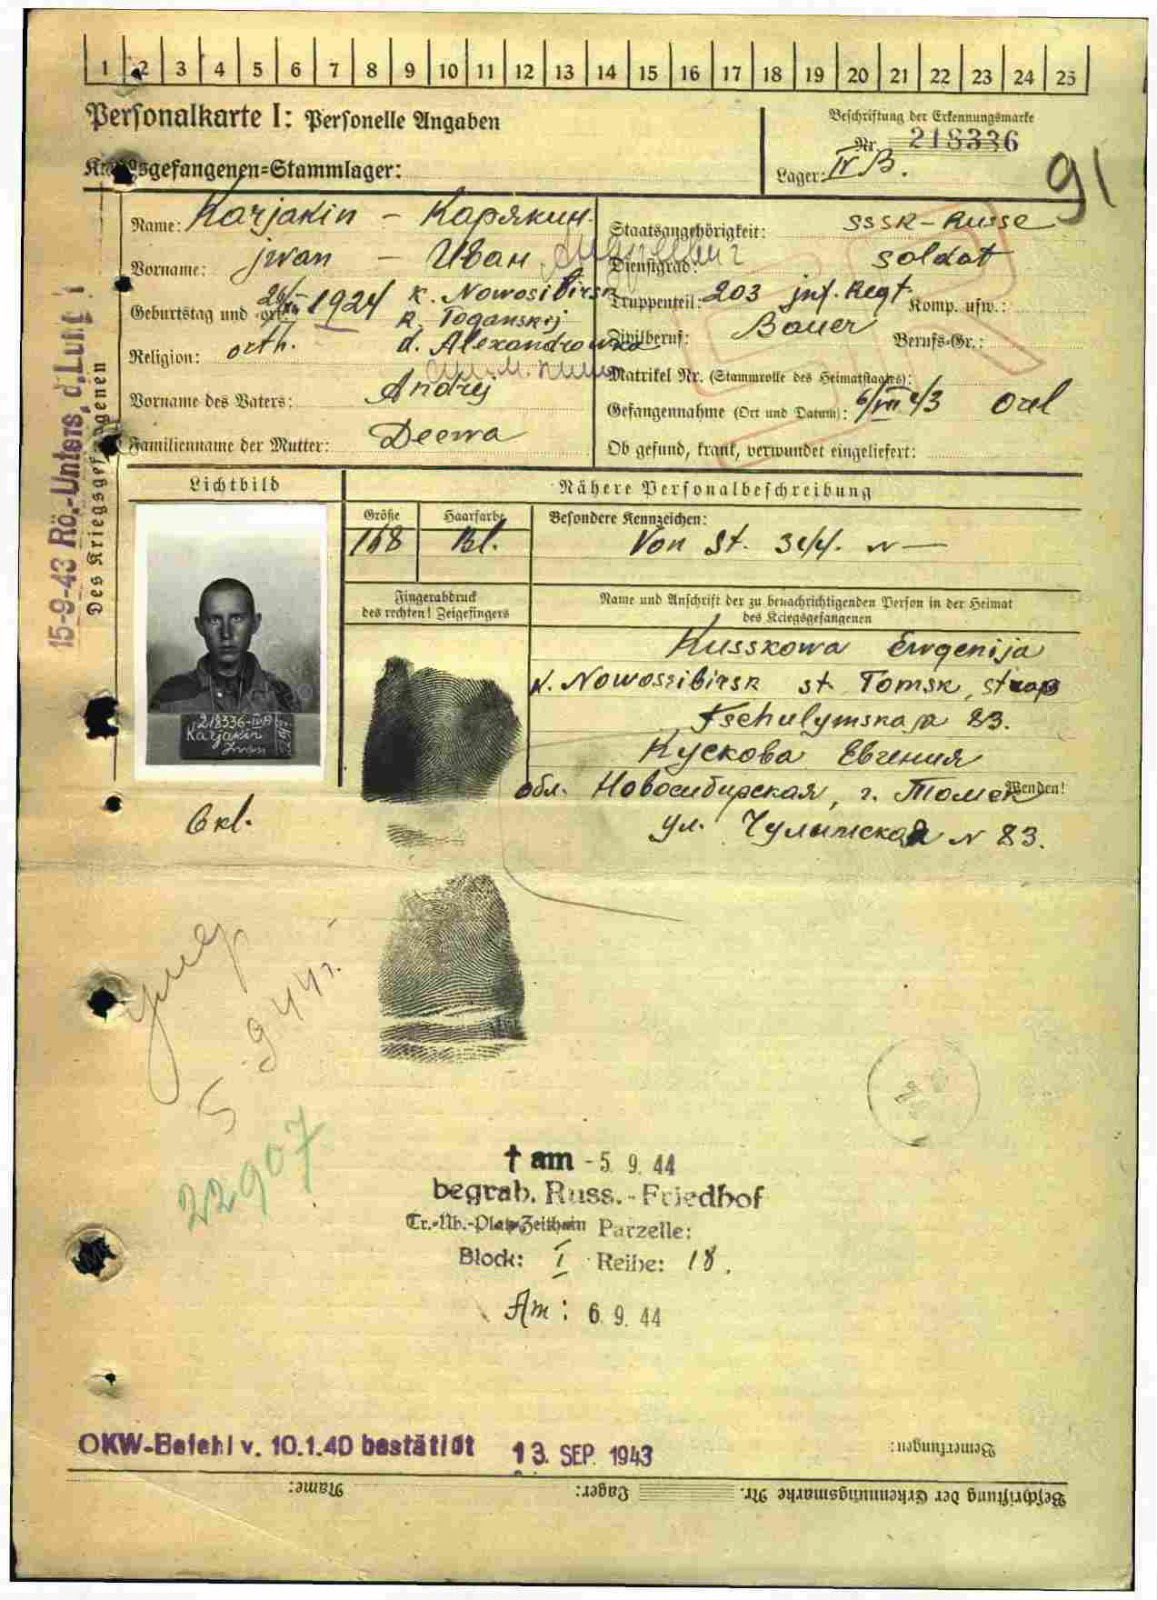 1 2 3 4 5 6 7 8 9 10 11 12 13 14 15 16 17 18 19 20 21 22 23 24 25
Personalkarte I: Personelle Angaben
Kriegsgefangenen=Stammlager:
Beschriftung der Erkennungsmarke
Nr. 218336
Lager: IV B.
91
Name: Karjakin – Карякин
Vorname: jwan – Иван
Geburtstag und =ort: 1924 K. Nowosibirsk
R. Toganskij
Religion: orth. d. Alexandrowka
Vorname des Vaters: Andrej
Familienname der Mutter: Deewa
Staatsangehörigkeit: SSSR-Russe
Dienstgrad: soldat
Truppenteil: 203 inf. Regt Komp. usw.:
Zivilberuf: Bauer Berufs=Gr.:
Matrikel Nr. (Stammrolle des Heimatstaates):
Gefangennahme (Ort und Datum): 6/VIII 43 Orel
Ob gesund, krank, verwundet eingeliefert:
15-9-43 Rö.-Unters. d. Lung
Des Kriegsgefangenen
Lichtbild
Nähere Personalbeschreibung
Größe
168
Haarfarbe
Bl.
Besondere Kennzeichen:
Von St.
Fingerabdruck
des rechten! Zeigefingers
Name und Anschrift der zu benachrichtigenden Person in der Heimat
des Kriegsgefangenen
Kusskowa Ewgenija
K. Nowossibirsk st. Tomsk,
Tschulymskaja 83.
Кускова Евгения
обл. Новосибирская, г. Томск
Wenden!
ул. Чулымская N 83.
218336-IVB
Karjakin
Jwan
умер
5.9.44 г.
22907
† am - 5. 9. 44
begrab. Russ.-Friedhof
Tr.-Üb.-Platz Zeithain Parzelle:
Block: I Reihe: 18.
Am: 6. 9. 44
OKW-Befehl v. 10.1.40 bestätigt 13. SEP. 1943
Bemerkungen:
Beschriftung der Erkennungsmarke Nr. Lager: Name: